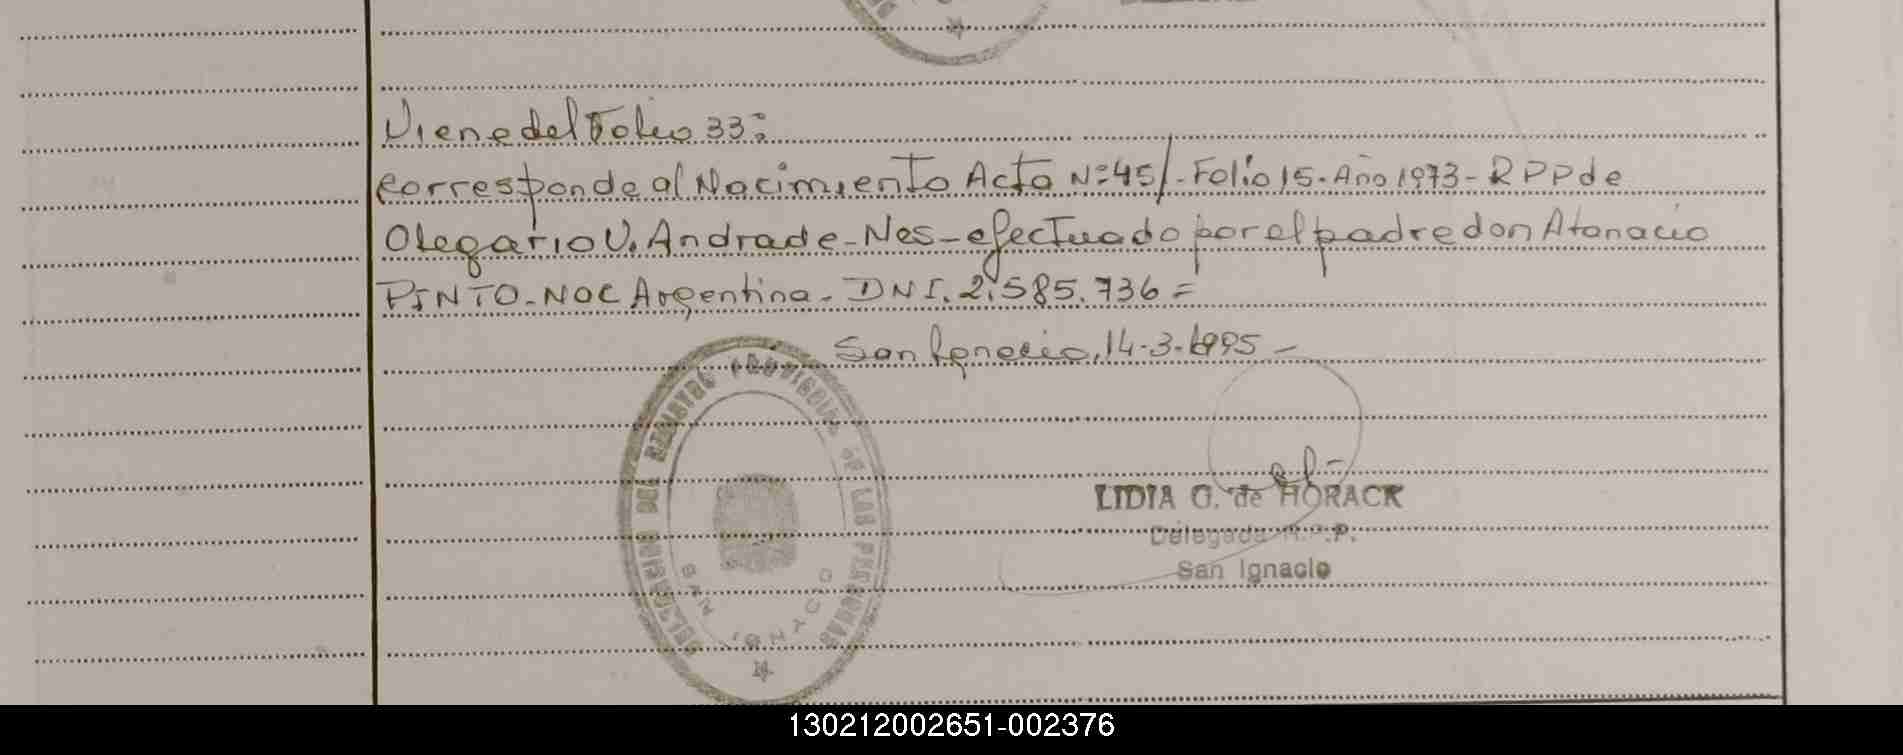 Viene del Folio 33:
corresponde al Nacimiento Acta Nº45/-Folio 15-Año 1973-RPP de
Olegario V. Andrade-Nes-efectuado por el padre don Atanacio
PINTO-NAC Argentina-DNI. 2.585.736=
San Ignacio, 14-3-1995-
DELEGACION DEL REGISTRO PROVINCIAL DE LAS PERSONAS
SAN IGNACIO
LIDIA G. de HORACK
Delegada R.P.P.
San Ignacio
130212002651-002376